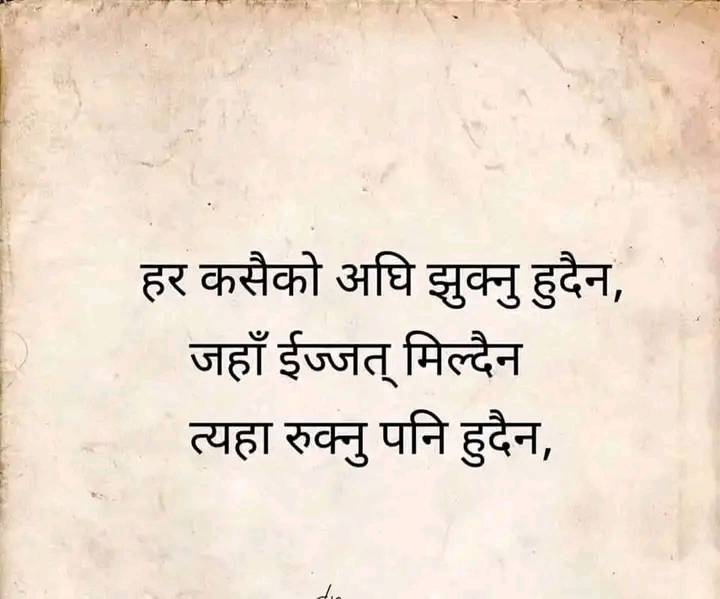 हर कसैको अघि झुक्नु हुदैन,
जहाँ ईज्जत् मिल्दैन
त्यहा रुक्नु पनि हुदैन,